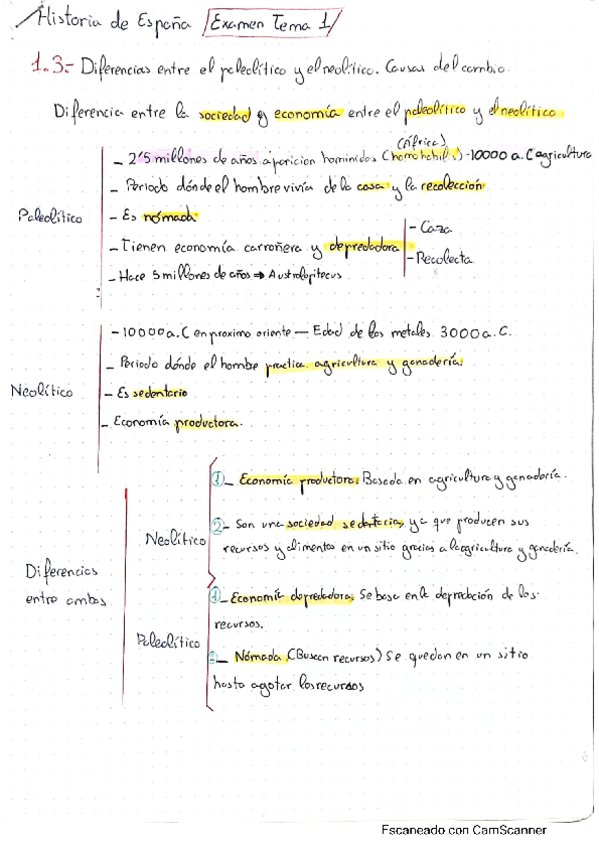 Historia de España Examen Tema 1
1.3.- Diferencias entre el paleolítico y el neolítico. Causas del cambio.
Diferencia entre la sociedad y economía entre el paleolítico y el neolítico.
Paleolítico
(África)
- 2'5 millones de años aparicion hominidos (homohabil.) -10000 a.C agricultura
- Periodo dónde el hombre vivía de la caza y la recolección
- Es nómada
- Tienen economía carroñera y depredadora
- Caza
- Recolecta
- Hace 5 millones de años ⇒ Australopitecus
Neolítico
- 10000 a.C en proximo oriente — Edad de los metales 3000 a.C.
- Periodo dónde el hombre practica agricultura y ganadería.
- Es sedentario
- Economía productora.
Diferencias
entre ambos
Neolítico
1- Economía productora: Basada en agricultura y ganadería.
2- Son una sociedad sedentaria, ya que producen sus
recursos y alimentos en un sitio gracias a la agricultura y ganadería.
Paleolítico
1- Economía depredadora: Se basa en la depredación de los
recursos.
2- Nómada (Buscan recursos) Se quedan en un sitio
hasta agotar los recursos
Escaneado con CamScanner